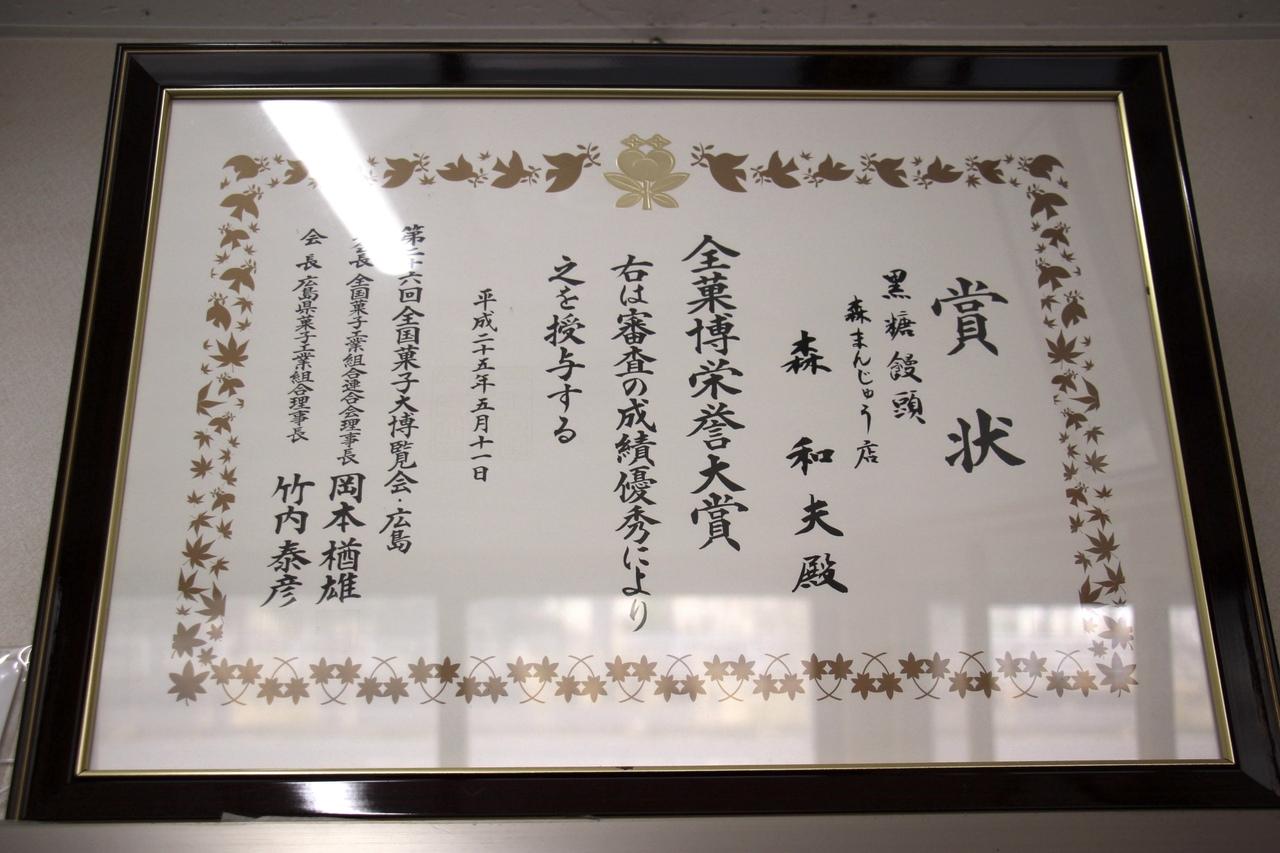 賞状
黒糖饅頭
森まんじゅう店
森和夫殿
全菓博栄誉大賞
右は審査の成績優秀により
之を授与する
平成二十五年五月十一日
第二十六回全国菓子大博覧会・広島
会長 全国菓子工業組合連合会理事長 岡本楢雄
会長 広島県菓子工業組合理事長 竹内泰彦